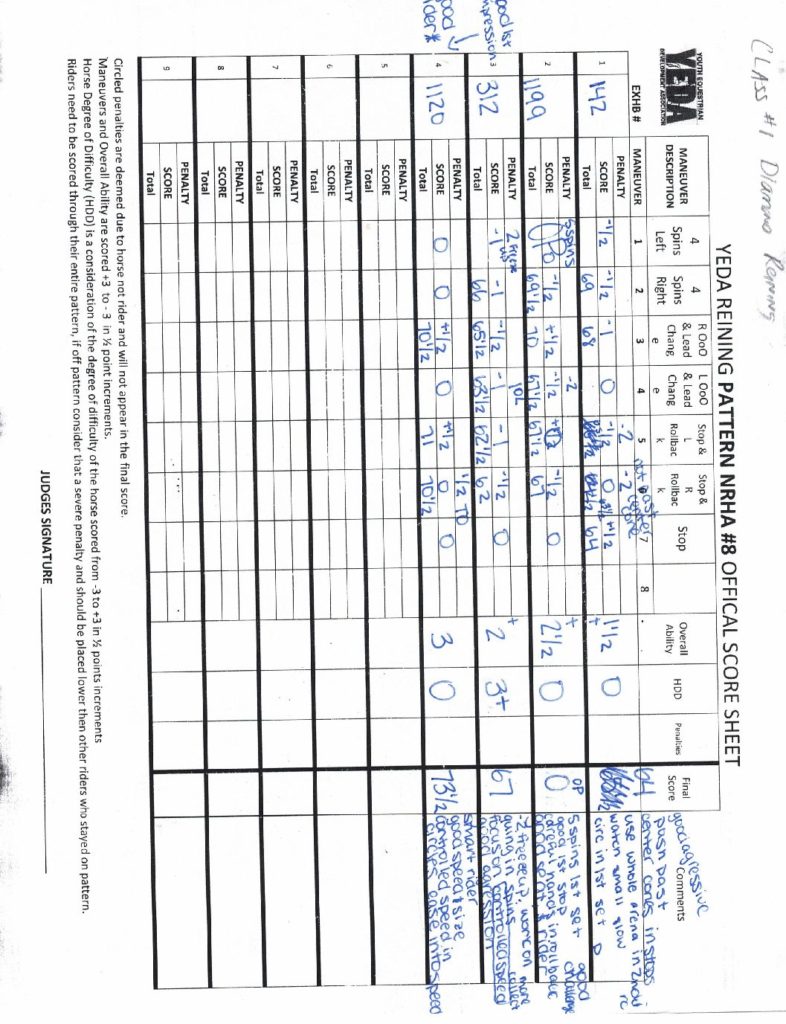 CLASS #1 Diamond Reining
YOUTH EQUESTRIAN
YEDA
DEVELOPMENT ASSOCIATION
YEDA REINING PATTERN NRHA #8 OFFICAL SCORE SHEET
EXHB # MANEUVER DESCRIPTION 4 Spins Left 4 Spins Right R OoO & Lead Chang e L OoO & Lead Chang e Stop & L Rollbac k Stop & R Rollbac k Stop Overall Ability HDD Penalties Final Score Comments
MANEUVER 1 2 3 4 5 7 8
1 142
PENALTY -2 -2 not past center cone
SCORE -1/2 -1/2 -1 0 -1/2 0 +1/2 +1 1/2 0 64
Total 69 68 64
good agressive
push past
center cones in stops
use whole arena in 2nd
watch small slow
circ in 1st set
2 1199
PENALTY 5 spins -2
SCORE OP -1/2 +1/2 -1/2 -1/2 0 +2 1/2 0 OP 0
Total 69 1/2 70 67 1/2 67 1/2 67
5 spins 1st set good
good 1st stop challenge
careful hands in rollback
good seat & rider
good 1st impression
3 312
PENALTY 2 freeze up JOL
SCORE -1 -1 -1/2 -1 -1 -1/2 0 +2 3+ 67
Total 66 65 1/2 63 1/2 62 1/2 62
-2 freeze up. work on more
going in spins collect
focus on controlled speed
good agression
good rider*
4 1120
PENALTY 1/2 TO
SCORE 0 0 +1/2 0 +1/2 0 0 3 0 73 1/2
Total 70 1/2 71 70 1/2
smart rider
good speed & size
controlled speed in
circles ease into speed
5
PENALTY
SCORE
Total
6
PENALTY
SCORE
Total
7
PENALTY
SCORE
Total
8
PENALTY
SCORE
Total
9
PENALTY
SCORE
Total
Circled penalties are deemed due to horse not rider and will not appear in the final score.
Maneuvers and Overall Ability are scored +3 to - 3 in ½ point increments.
Horse Degree of Difficulty (HDD) is a consideration of the degree of difficulty of the horse scored from -3 to +3 in ½ points increments
Riders need to be scored through their entire pattern, if off pattern consider that a severe penalty and should be placed lower then other riders who stayed on pattern.
JUDGES SIGNATURE